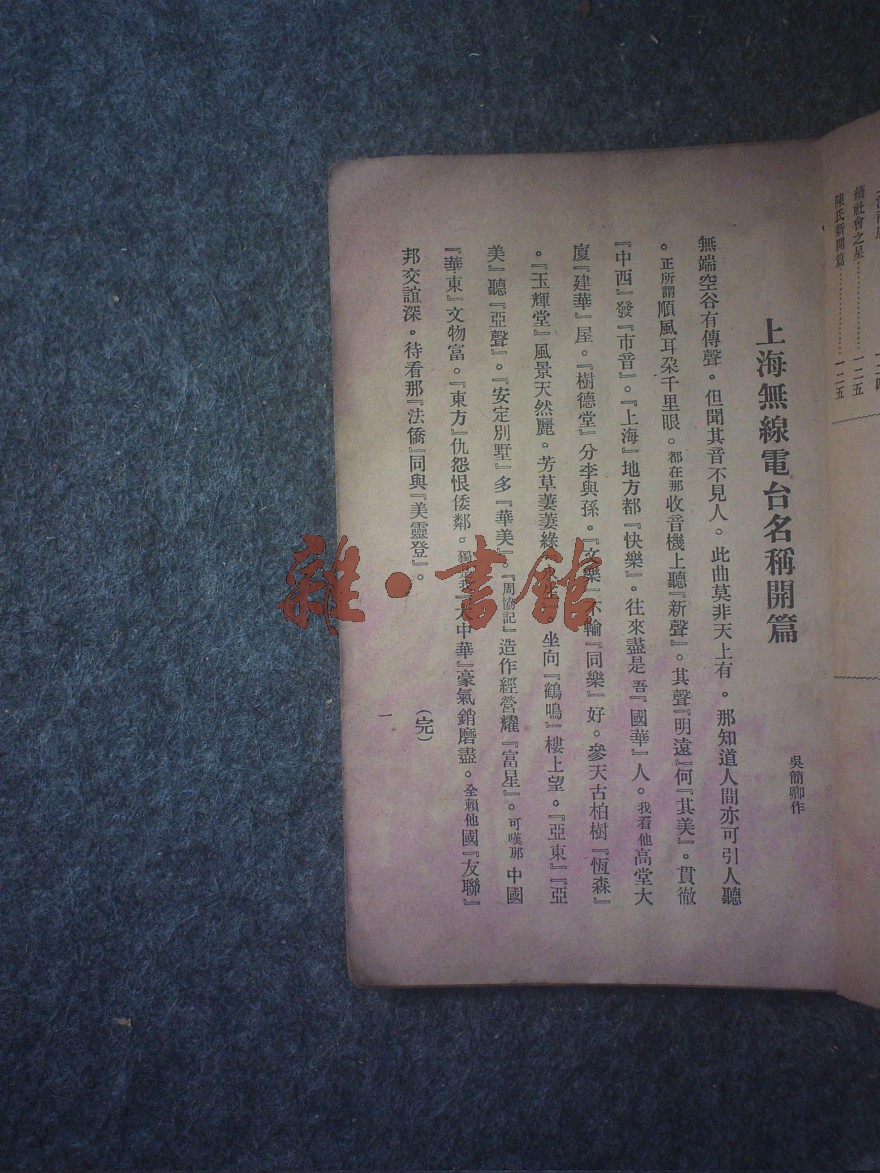 續社會之星…………一二五
陳氏新開篇…………一二五
上海無線電台名稱開篇
吳簡卿作
無端空谷有傳聲。但聞其音不見人。此曲莫非天上有。那知道人間亦可引人聽
。正所謂順風耳朵千里眼。都在那收音機上聽『新聲』。其聲『明遠』何『其美』。貫徹
『中西』發『市音』。『上海』地方都『快樂』。往來盡是吾『國華』人。我看他高堂大
廈『建華』屋。『樹德堂』分李與孫。『文樂』不輸『同樂』好。參天古柏樹『恆森』
。『玉輝堂』風景天然麗。芳草萋萋綠 坐向『鶴鳴』樓上望。『亞東』『亞
美』聽『亞聲』。『安定別墅』多『華美』。『周協記』造作經營耀『富星』。可嘆那中國
『華東』文物富。『東方』仇怨恨倭鄰。獨 『大中華』豪氣銷磨盡。全賴他國『友聯』
邦交誼深。待看那『法僑』同與『美靈登』。
（完）
一
雜·書館